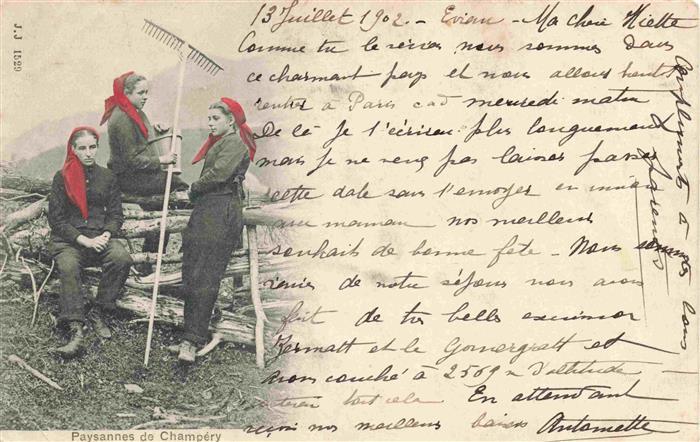 J.J. 1529
13 Juillet 1902 - Evian - Ma chère Miette
Comme tu le verras nous sommes dans
ce charmant pays et nous allons
rentrer à Paris càd mercredi matin
De là je t'écrirai plus longuement
mais je ne veux pas laisser passer
cette date sans t'envoyer
nos meilleurs
souhaits de bonne fête - Nous sommes
ravies de notre séjour nous avons
fait de très belles excursions
Zermatt et le Gornergratt et
avons couché à 2569 m d'altitude
tout cela En attendant
reçois nos meilleurs baisers Antoinette
Compliments à tous
Paysannes de Champéry